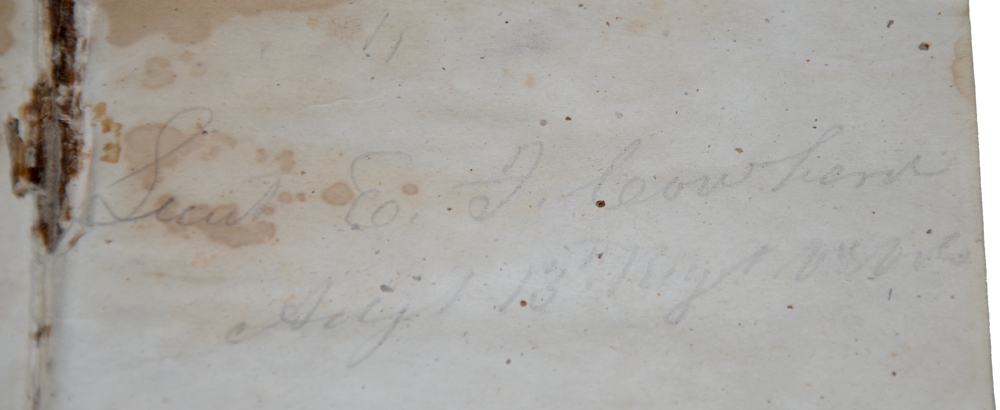 Lieut E. J. Cowherd
Adjt 13th Regt Va Vols